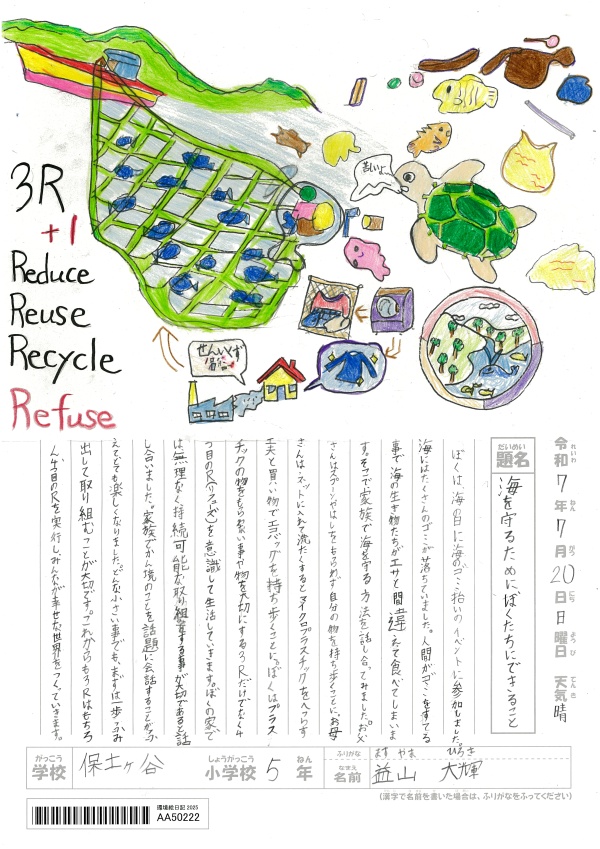 3R
+1
Reduce
Reuse
Recycle
Refuse
苦しいよ
せんいくず
令和7年7月20日日曜日 天気晴
れいわ ねん がつ にち ようび てんき
だいめい
題名
海を守るためにぼくたちにできること
ぼくは、海の日に海のゴミ拾いのイベントに参加しました。
海にはたくさんのゴミが落ちていました。人間がゴミをすてる
事で海の生き物たちがエサと間違えて食べてしまいま
す。そこで家族で海を守る方法を話し合ってみました。お父
さんはスプーンやはしをもらわず自分の物を持ち歩くことに、お母
さんは、ネットに入れて洗たくするとマイクロプラスチックをへらす
工夫と買い物でエコバッグを持ち歩くことに。ぼくはプラス
チックの物をもらわない事や物を大切にする3Rだけでなく4
つ目のR(リフューズ)を意識して生活していきます。ぼくの家で
は無理なく持続可能な取り組をする事が大切であると話
し合いました。家族でかん境のことを話題に会話することがふ
えてとても楽しくなりました。どんな小さい事でも、まずは一歩ふみ
出して取り組むことが大切です。これからも3Rはもちろ
ん、4つ目のRを実行し、みんなが幸せな世界をつくっていきます。
がっこう しょうがっこう ねん ふりがな ます やま ひろき
学校 保土ヶ谷 小学校 5年 なまえ 名前 益山 大輝
(漢字で名前を書いた場合は、ふりがなをふってください)
環境絵日記 2025
AA50222